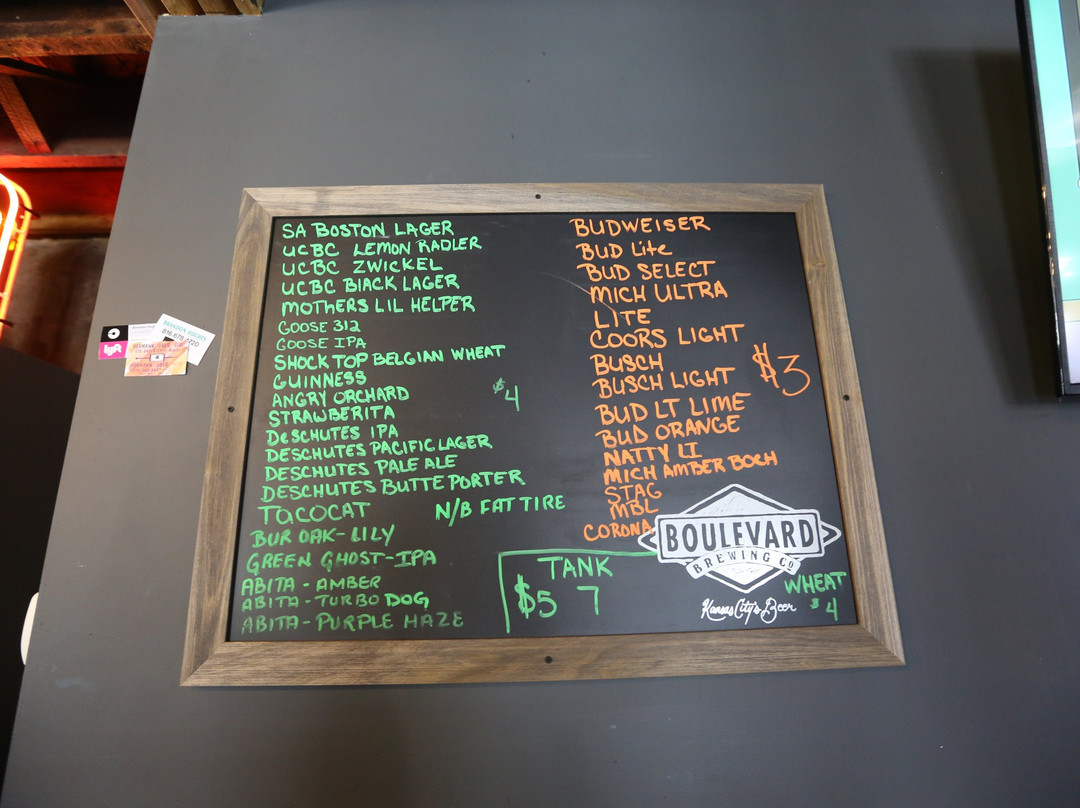 SA BOSTON LAGER
UCBC LEMON RADLER
UCBC ZWICKEL
UCBC BLACK LAGER
MOTHERS LIL HELPER
GOOSE 312
GOOSE IPA
SHOCK TOP BELGIAN WHEAT
GUINNESS
ANGRY ORCHARD
$4
STRAWBERITA
DESCHUTES IPA
DESCHUTES PACIFIC LAGER
DESCHUTES PALE ALE
DESCHUTES BUTTE PORTER
TACOCAT
N/B FAT TIRE
BUR OAK-LILY
GREEN GHOST-IPA
ABITA - AMBER
ABITA - TURBO DOG
ABITA - PURPLE HAZE
BUDWEISER
BUD Lite
BUD SELECT
MICH ULTRA
LITE
COORS LIGHT
BUSCH
$3
BUSCH LIGHT
BUD LT LIME
BUD ORANGE
NATTY LI
MICH AMBER BOCH
STAG
MBL
CORONA
TANK
$5 7
BOULEVARD
BREWING CO
Kansas City's Beer
WHEAT
$4
lyft